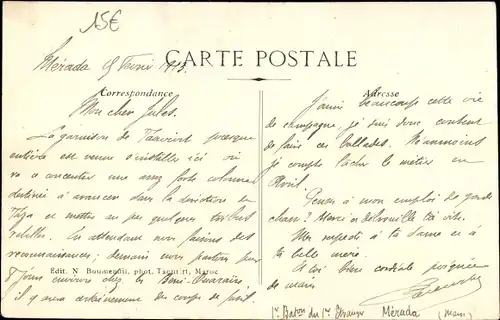 15€
Mérada 9 Février 1913
CARTE POSTALE
Correspondance
Adresse
Mon cher Jules.
La garnison de Taourirt presque
entière est venue s'installer ici où
va se concentrer une assez forte colonne
destinée à avancer dans la direction de
Taza et mettre au pas quelques tribus
rebelles. En attendant nous faisons des
reconnaissances; demain nous partons pour
8 jours environ chez les Beni-Ouaraïn.
il y aura certainement des coups de fusil.
Edit. N. Boumendil, phot. Taourirt, Maroc
J'aime beaucoup cette vie
de campagne, je suis donc content
de faire ces ballades. Néanmoins
je compte lâcher le métier en
Avril.
Penses à mon emploi de garde
chasse! Merci
Mes respects à ta dame et à
ta belle mère.
A toi bien cordiale poignée
de main
1er Baton du 1er Etranger Mérada (Maroc)